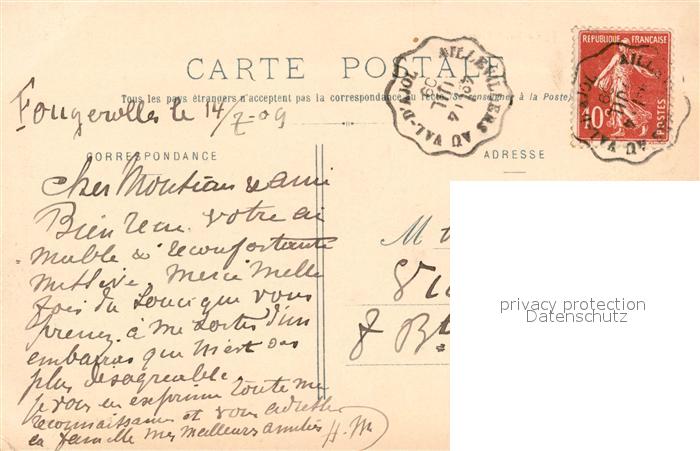 CARTE POSTALE
Tous les pays étrangers n'acceptent pas la correspondance au recto (Se renseigner à la Poste)
Fougerolles le 14/7-09
CORRESPONDANCE
ADRESSE
Cher Monsieur & ami
Bien reçu votre ai
mable & réconfortante
missive. Merci mille
fois du souci que vous
prenez à me sortir d'un
embarras qui m'est des
plus désagréable
je vous en exprime toute ma
reconnaissance et vous adresse
en famille mes meilleurs amitiés H. M
M
8 B
AILLEVILLERS AU VAL-D'AJOL
REPUBLIQUE FRANÇAISE
10 c
POSTES
privacy protection
Datenschutz